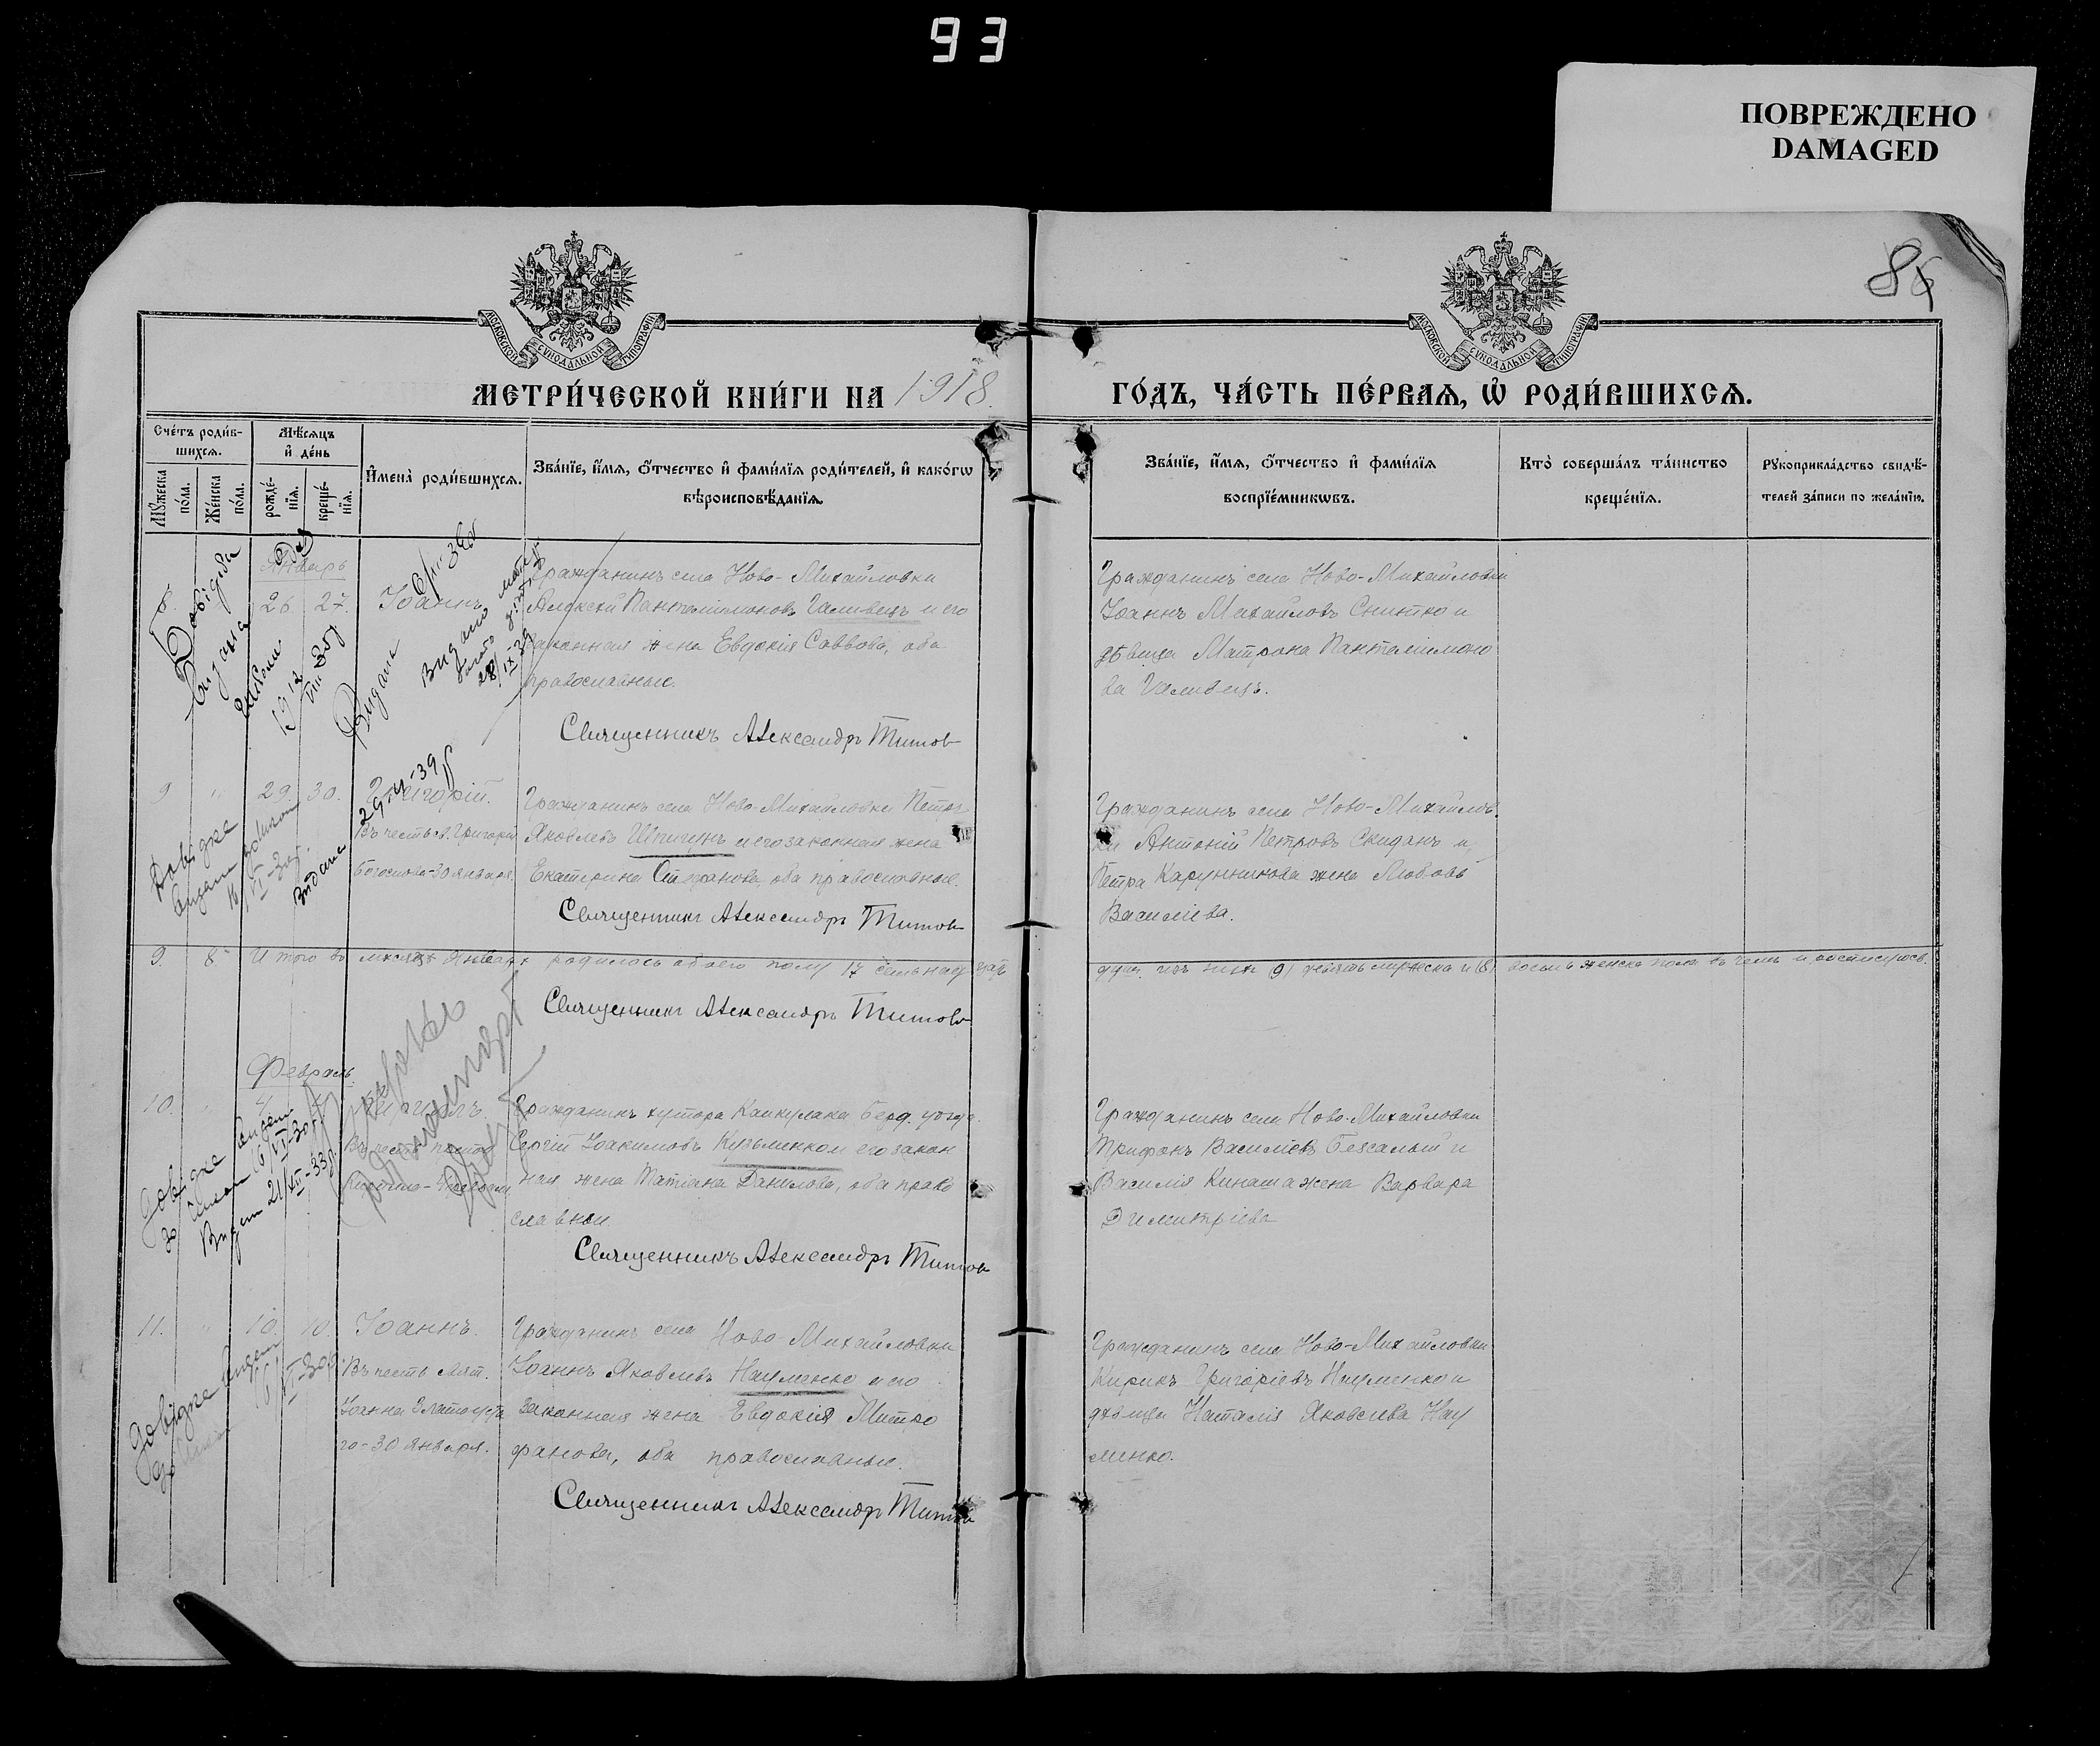 93
ПОВРЕЖДЕНО
DAMAGED
86
МОСКОВСКОЙ СУНОДАЛЬНОЙ ТИПОГРАФІИ
МОСКОВСКОЙ СУНОДАЛЬНОЙ ТИПОГРАФІИ
МЕТРИ́ЧЕСКОЙ КНИ́ГИ НА 1918
ГО́ДЪ, ЧА́СТЬ ПЕ́РВАѦ, Ѡ РОДИ́ВШИХСѦ.
Сче́тъ роди́в-
шихсѧ.
Мꙋжеска по́ла.
Же́нска по́ла.
Мѣ́сѧцъ
и҆ де́нь
рожде́-
нїѧ.
креще́-
нїѧ.
И҆мена̀ роди́вшихсѧ.
Зва́нїе, и҆́мѧ, ѻ҆́тчество и҆ фами́лїѧ роди́телей, и҆ како́гѡ
вѣроисповѣ́данїѧ.
Зва́нїе, и҆́мѧ, ѻ҆́тчество и҆ фами́лїѧ
воспрїе́мникѡвъ.
Кто̀ соверша́лъ та́инство
креще́нїѧ.
Рꙋкоприкла́дство свидѣ́-
телей за́писи по жела́нїю.
Январь
8. 26 27. Іоаннъ
Гражданинъ села Ново-Михайловки
Алексѣй Пантелеимоновъ Галивецъ и его
законная жена Евдокія Саввова, оба
православные.
Священникъ Александръ Титов
Гражданинъ села Ново-Михайловки
Іоаннъ Михайловъ Снитко и
дѣвица Матрона Пантелеимоно
ва Галивецъ.
Довідка
видана
Видана
Видано
28/IX-39
9 " 29 30. Григорій.
Въ честь св. Григорія
Богослова-30 января.
Гражданинъ села Ново-Михайловки Петръ
Яковлевъ Шпигунъ и его законная жена
Екатерина Стефанова, оба православные.
Священникъ Александръ Титов
Гражданинъ села Ново-Михайлов
ки Антоній Петровъ Скиданъ и
Петра Карунникова жена Любовь
Василіева.
29/XI-39
Довідка
видана
Видана
9. 8 Итого въ мѣсяцѣ Январѣ родилось обоего полу 17 семьнадцать
душъ, изъ нихъ (9) девять мужеска и (8) восемь женска пола въ чемъ и
Священникъ Александръ Титовъ
Февраль.
10. " 4 4
Гражданинъ хутора Канкулака Берд. уѣзда
Сергій Іоакимовъ Кузьминком его закон
ная жена Татіана Данилова, оба право
славные.
Священникъ Александръ Титов
Гражданинъ села Ново-Михайловки
Трифонъ Василіевъ Безсалый и
Василія Кинаша жена Варвара
Димитріева
Довідка видана
Видана 21/XII-33
11. " 10. 10. Іоаннъ.
Въ честь Свят.
Іоанна Златоуста
го-30 Января.
Гражданинъ села Ново-Михайловки
Іоаннъ Яковлевъ Науменко и его
законная жена Евдокія Митро
фанова, оба православные.
Священникъ Александръ Титов
Гражданинъ села Ново-Михайловки
Кирикъ Григоріевъ Науменко и
дѣвица Наталія Яковлева Нау
менко.
Довідка видана